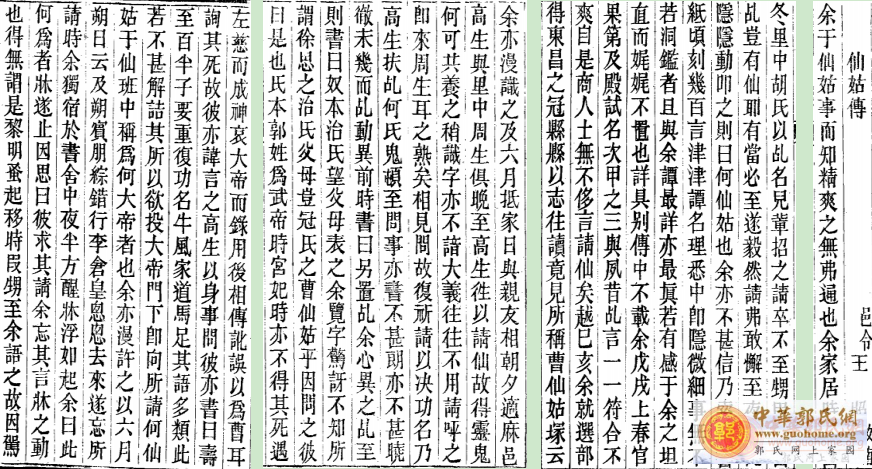 仙姑傳
邑令王
余于仙姑事而知精爽之無弗遍也余家居
冬里中胡氏以乩名兒輩招之請卒不至甥
乩豈有仙耶有當必至遂毅然請弗敢懈至
隱隱動叩之則曰何仙姑也余亦不甚信乃
紙頃刻幾百言津津譚名理悉中卽隱微細事無不
若洞鑑者且與余譚最詳亦最眞若有感于余之坦
直而娓娓不置也詳具別傳中不載余戊戌上春官
果第及殿試名次甲之三與夙昔乩言一一符合不
爽自是商人士無不侈言請仙矣越己亥余就選部
得東昌之冠縣縣以志往讀竟見所稱曹仙姑塚云
余亦漫識之及六月抵家日與親友相朝夕適麻邑
高生與里中周生俱晚至高生徃以請仙故得靈鬼
何可共養之稍識字亦不諳大義往往不用請呼之
卽來周生耳之熟矣相見間故復祈請以決功名乃
高生扶乩何氏鬼頓至問事亦書不甚朗亦不甚曉
徹未幾而乩動異前時書曰另置乩余心異之乩至
則書曰奴本治氏望父母表之余覽字驚訝不知所
謂徐思之治氏父母豈冠氏之曹仙姑乎因問之彼
曰是也氏本郭姓爲武帝時宮妃時亦不得其死遇
左慈而成神哀大帝而錄用後相傳訛誤以爲曹耳
詢其死故彼亦諱言之高生以身事問彼亦書曰壽
至百半子要重復功名牛風家道馬足其語多類此
若不甚解詰其所以欲投大帝門下卽向所請何仙
姑于仙班中稱爲何大帝者也余亦漫許之以六月
朔日云及朔賓朋綜錯行李倉皇悤悤去來遂忘所
請時余獨宿於書舍中夜半方醒牀浮如起余曰此
何爲者牀遂止因思曰彼求其請余忘其言牀之動
也得無謂是黎明蚤起移時叚甥至余語之故因駕
中華郭氏網
www.guohome.org
郭氏网上家园